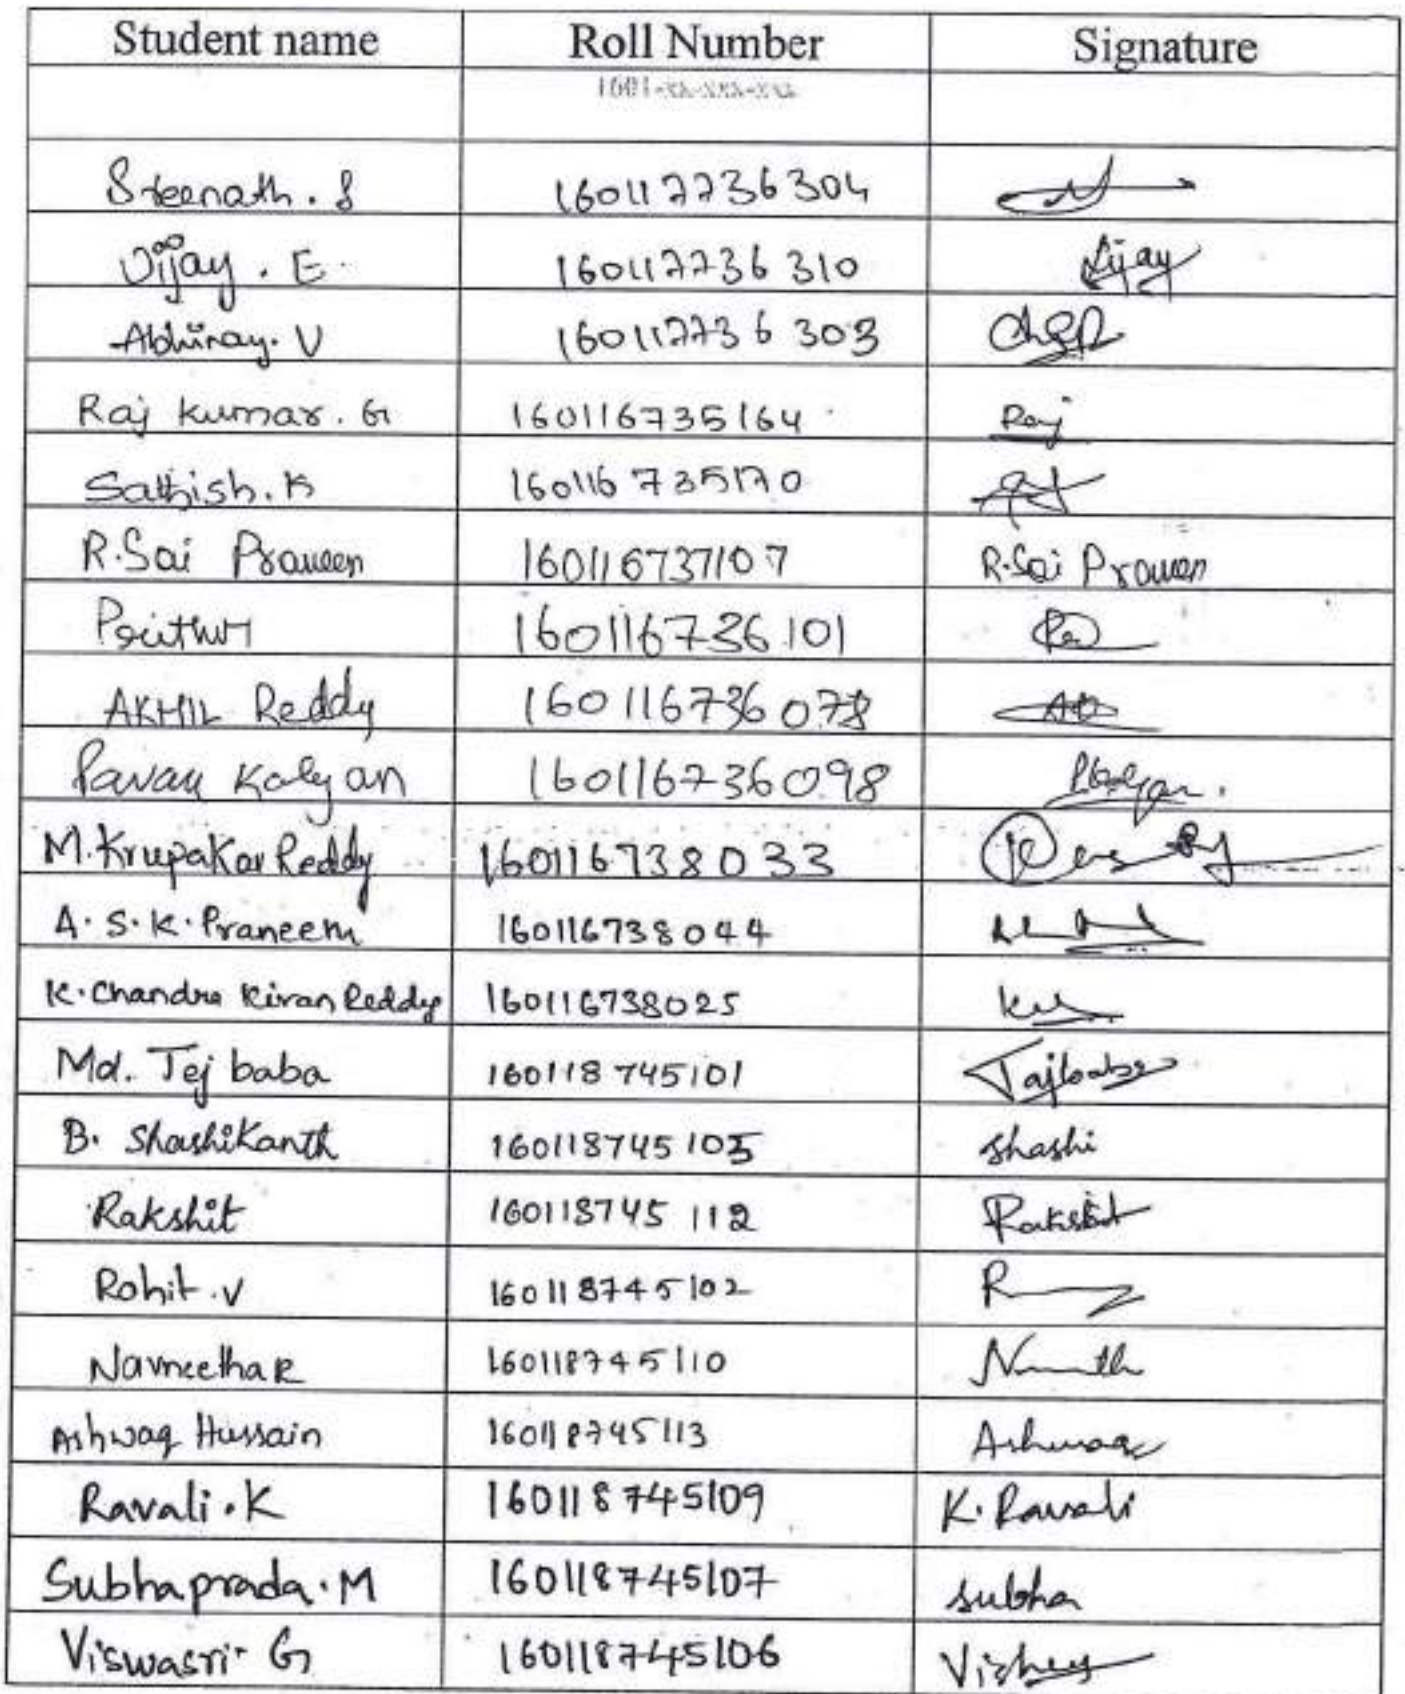 Student name Roll Number Signature
1601-xx-xxx-xxx
Sreenath. S 160117736304
Vijay. E. 160117736310 Vijay
Abhinay. V 160117736303
Raj Kumar. G 160116735164 Raj
Sathish. K 160116735170
R. Sai Praveen 160116737107 R. Sai Praveen
Prithvi 160116736101
AKHIL Reddy 160116736078
Pavan Kalyan 160116736098 PKalyan.
M. Krupakar Reddy 160116738033
A. S. K. Praneem 160116738044
K. Chandra Kiran Reddy 160116738025
Md. Tej baba 160118745101 Tajbaba
B. Shashikanth 160118745105 Shashi
Rakshit 160118745112 Rakshit
Rohit. V 160118745102 R
Navneetha R 160118745110
Ashwaq Hussain 160118745113 Ashwaq
Ravali. K 160118745109 K. Ravali
Subhaprada. M 160118745107 Subha
Viswasri. G 160118745106